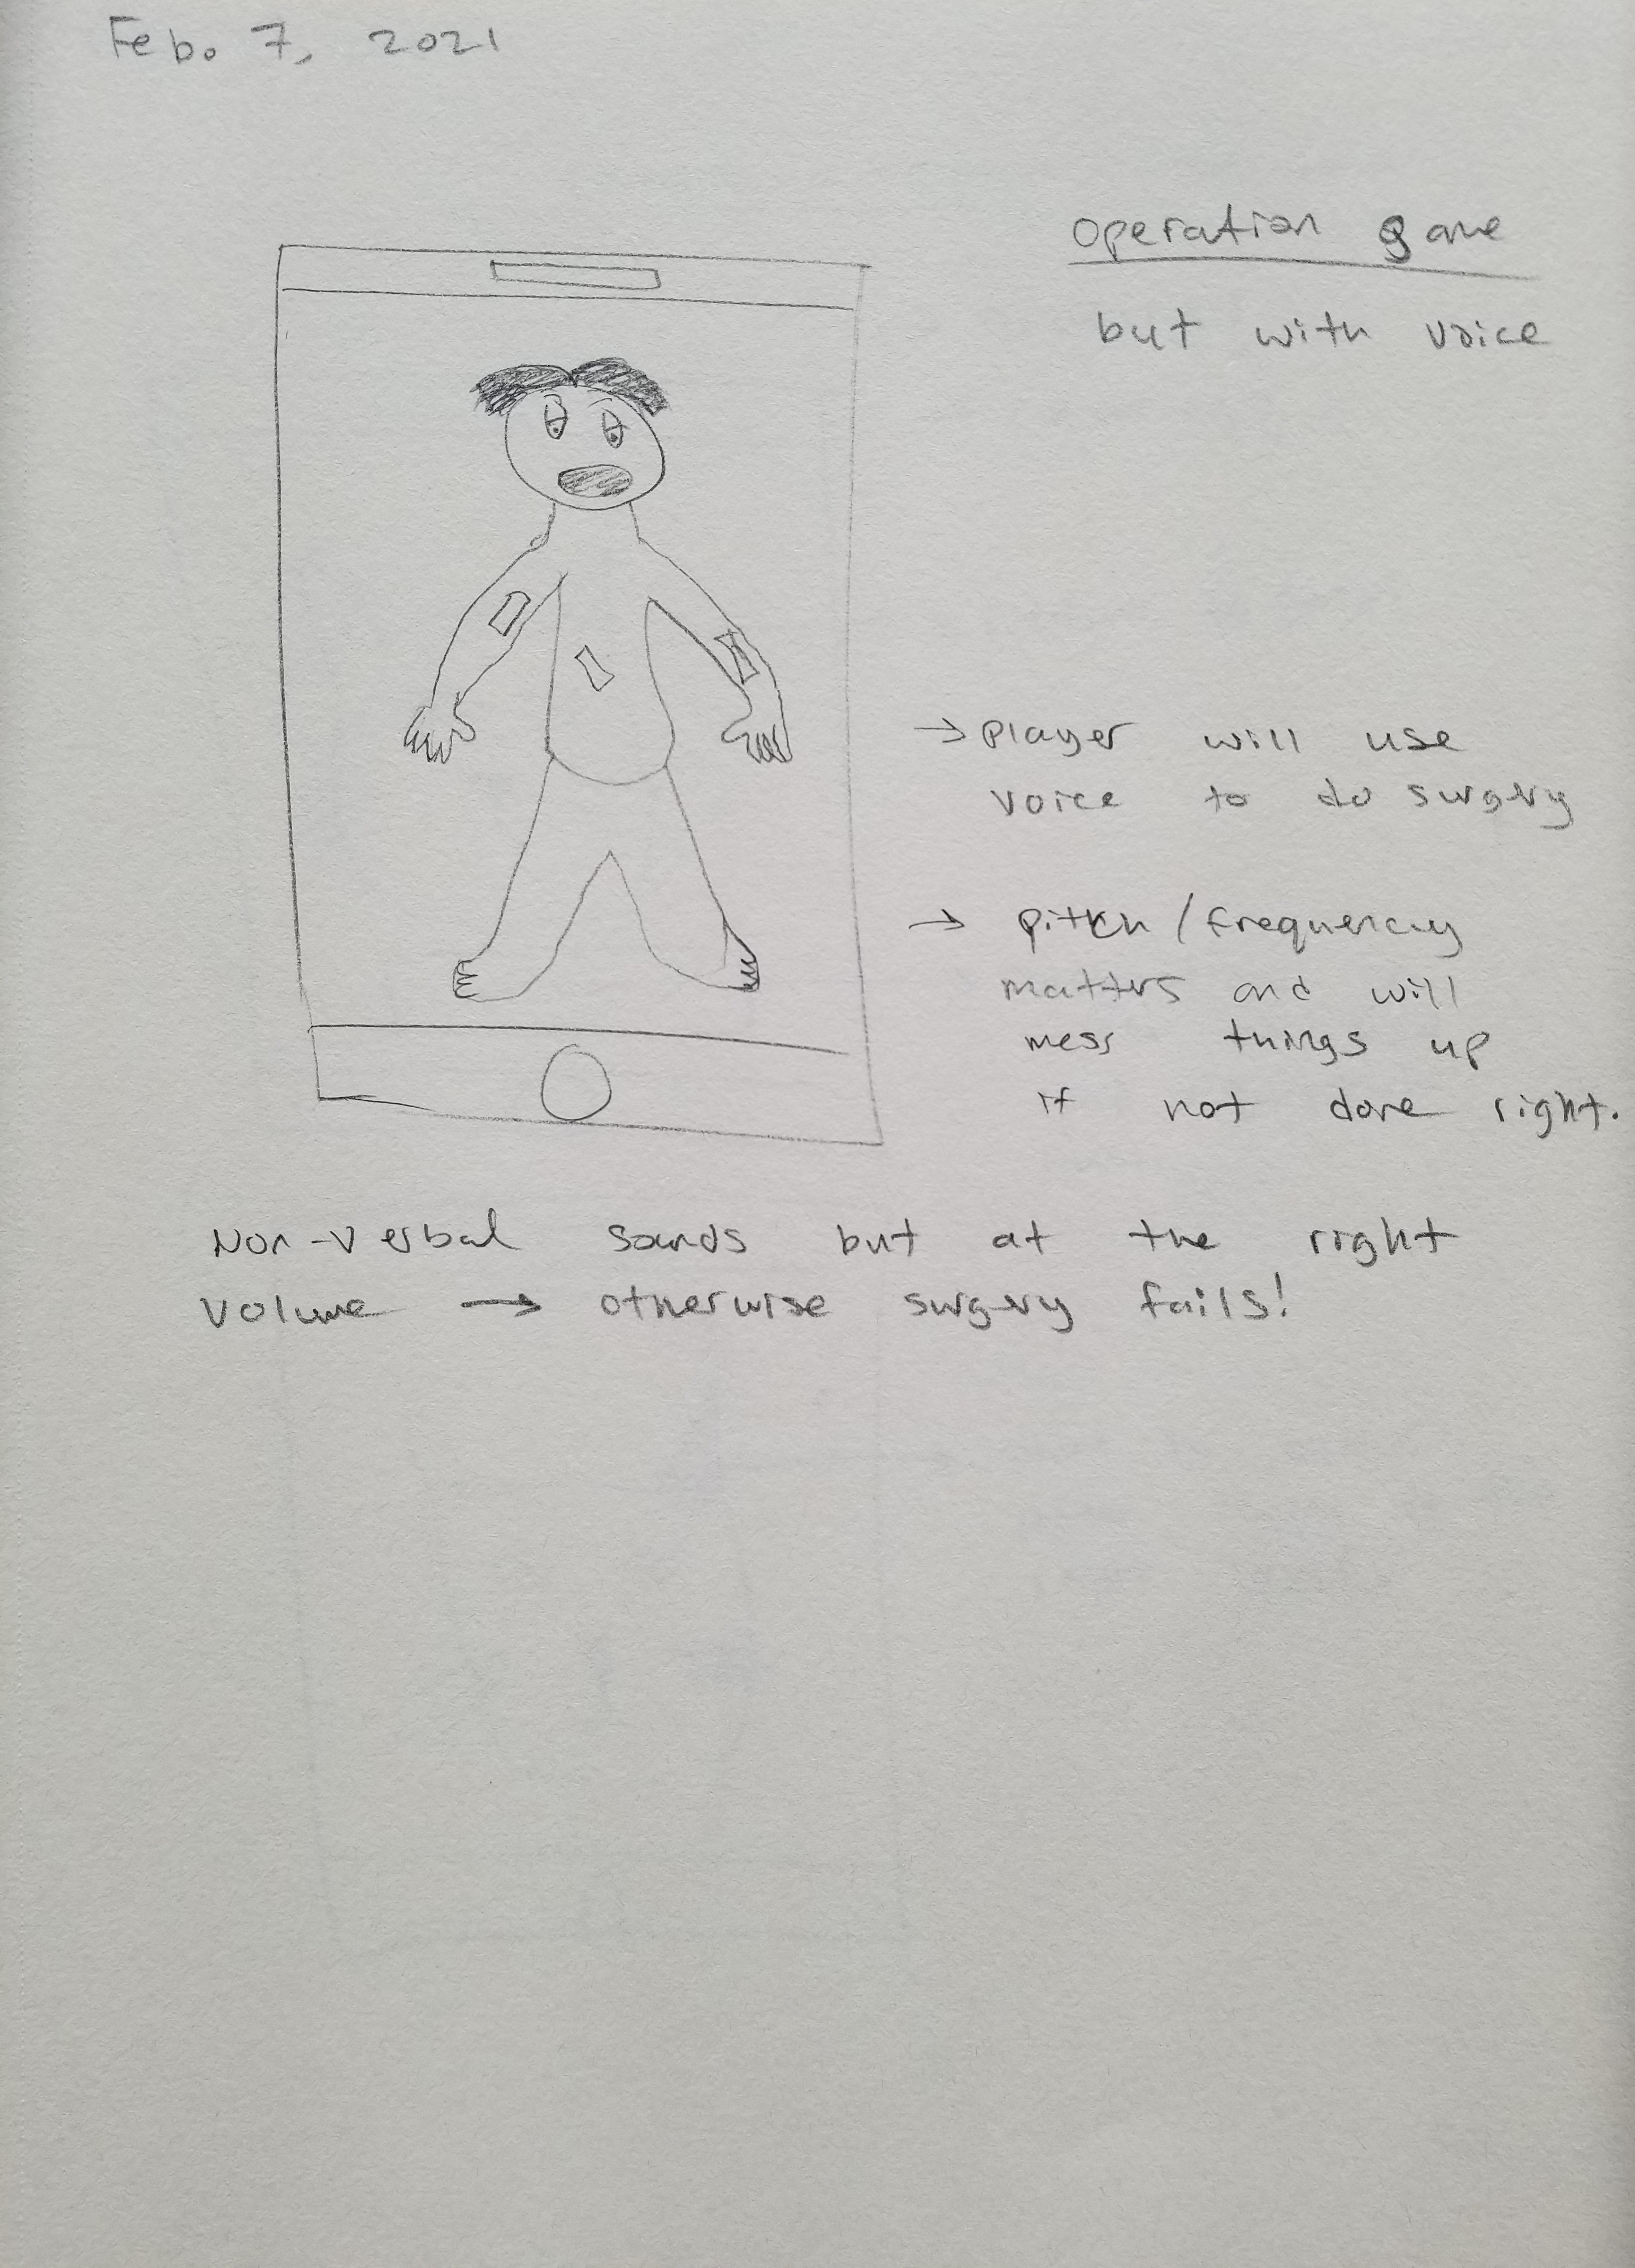 Feb. 7, 2021
Operation game
but with voice
→ player will use
voice to do surgery
→ pitch / frequency
matters and will
mess things up
if not done right.
Non-verbal sounds but at the right
volume → otherwise surgery fails!